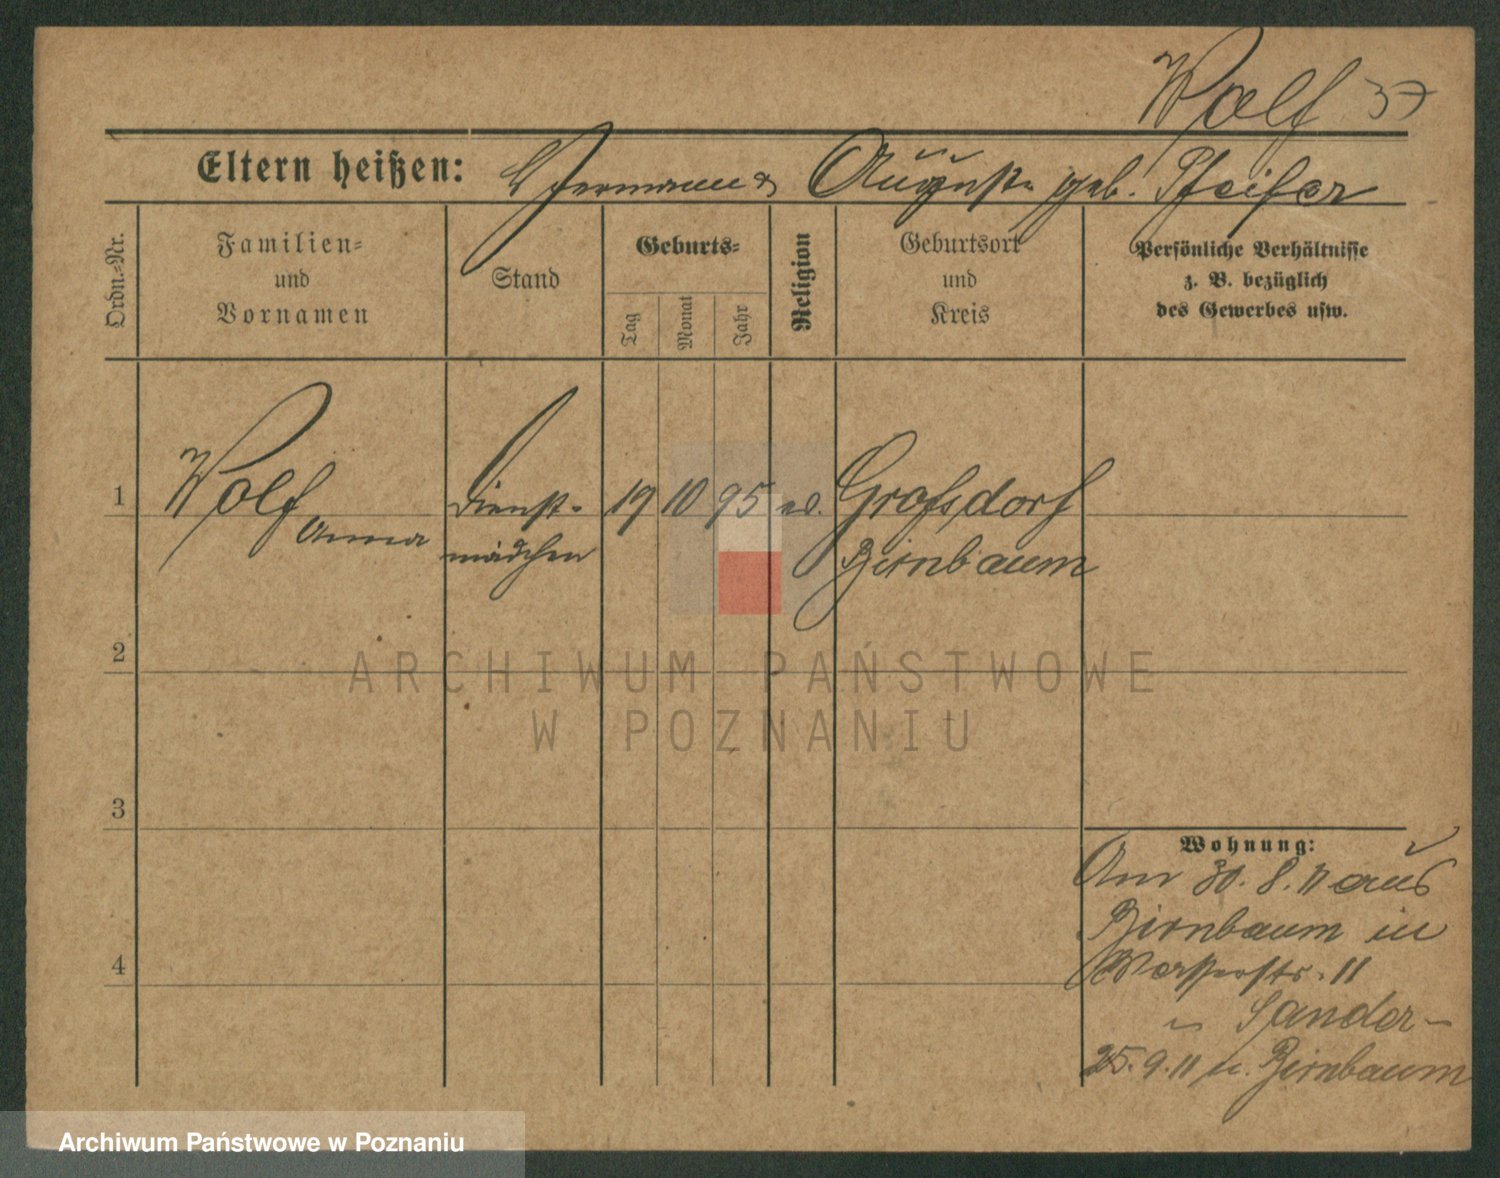 Wolf 37
Eltern heißen: Hermann & Auguste geb. Pfeifer
Ordn.=Nr.
Familien=
und
Vornamen
Stand
Geburts=
Tag
Monat
Jahr
Religion
Geburtsort
und
Kreis
Persönliche Verhältnisse
z. B. bezüglich
des Gewerbes usw.
1
Wolf
Anna
Dienst-
mädchen
19
10
95
ev.
Grofsdorf
Birnbaum
2
3
4
Wohnung:
Am 30. 8. 11 aus
Birnbaum in
Wasserstr. 11
Sander-
25. 9. 11 n. Birnbaum
ARCHIWUM PAŃSTWOWE
W POZNANIU
Archiwum Państwowe w Poznaniu